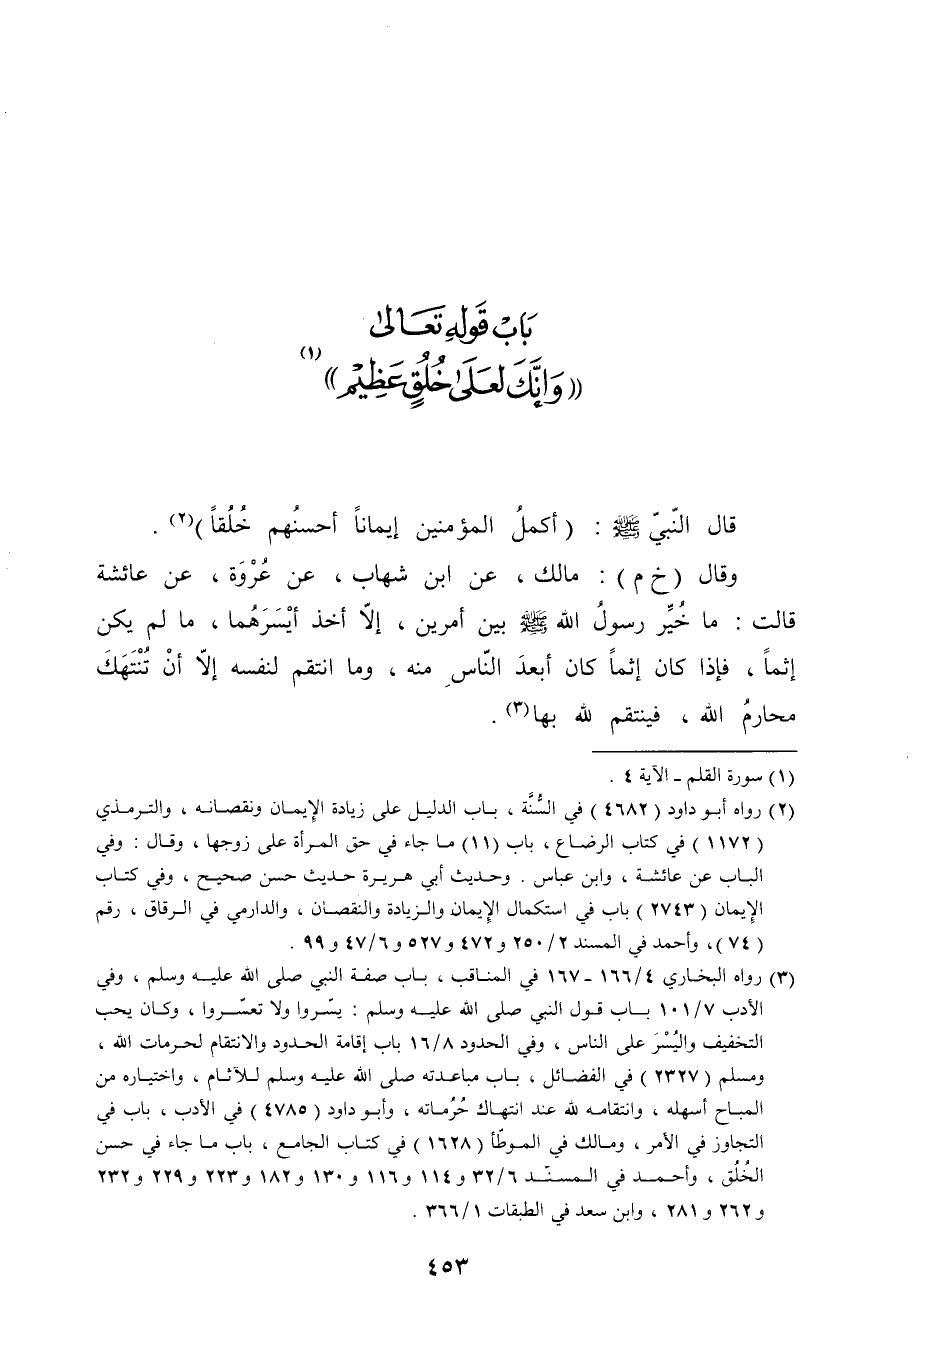 بَابُ قَوْلِهِ تَعَالىٰ
((وَإِنَّكَ لَعَلىٰ خُلُقٍ عَظِيْمٍ)) (١)
قال النّبيّ ﷺ : (أكملُ المؤمنين إيماناً أحسنُهم خُلُقاً)(٢) .
وقال (خ م) : مالك ، عن ابن شهاب ، عن عُرْوَة ، عن عائشة
قالت : ما خُيِّر رسولُ الله ﷺ بين أمرين ، إلاّ أخذ أيْسَرَهُما ، ما لم يكن
إثماً ، فإذا كان إثماً كان أبعدَ النّاسِ منه ، وما انتقم لنفسه إلاّ أنْ تُنْتَهَكَ
محارمُ الله ، فينتقم لله بها(٣) .
(١) سورة القلم ـ الآية ٤ .
(٢) رواه أبو داود (٤٦٨٢) في السُّنَّة ، باب الدليل على زيادة الإيمان ونقصانه ، والترمذي
(١١٧٢) في كتاب الرضاع ، باب (١١) ما جاء في حق المرأة على زوجها ، وقال : وفي
الباب عن عائشة ، وابن عباس . وحديث أبي هريرة حديث حسن صحيح ، وفي كتاب
الإيمان (٢٧٤٣) باب في استكمال الإيمان والزيادة والنقصان ، والدارمي في الرقاق ، رقم
(٧٤) ، وأحمد في المسند ٢/٢٥٠ و٤٧٢ و٥٢٧ و٦/٤٧ و٩٩ .
(٣) رواه البخاري ٤/١٦٦ ـ ١٦٧ في المناقب ، باب صفة النبي صلى الله عليه وسلم ، وفي
الأدب ٧/١٠١ باب قول النبي صلى الله عليه وسلم : يسّروا ولا تعسّروا ، وكان يحب
التخفيف واليُسْرَ على الناس ، وفي الحدود ٨/١٦ باب إقامة الحدود والانتقام لحرمات الله ،
ومسلم (٢٣٢٧) في الفضائل ، باب مباعدته صلى الله عليه وسلم للآثام ، واختياره من
المباح أسهله ، وانتقامه لله عند انتهاك حُرُماته ، وأبو داود (٤٧٨٥) في الأدب ، باب في
التجاوز في الأمر ، ومالك في الموطّأ (١٦٢٨) في كتاب الجامع ، باب ما جاء في حسن
الخُلُق ، وأحمد في المسنّد ٦/٣٢ و١١٤ و١١٦ و١٣٠ و١٨٢ و٢٢٣ و٢٢٩ و٢٣٢
و٢٦٢ و٢٨١ ، وابن سعد في الطبقات ١/٣٦٦ .
٤٥٣